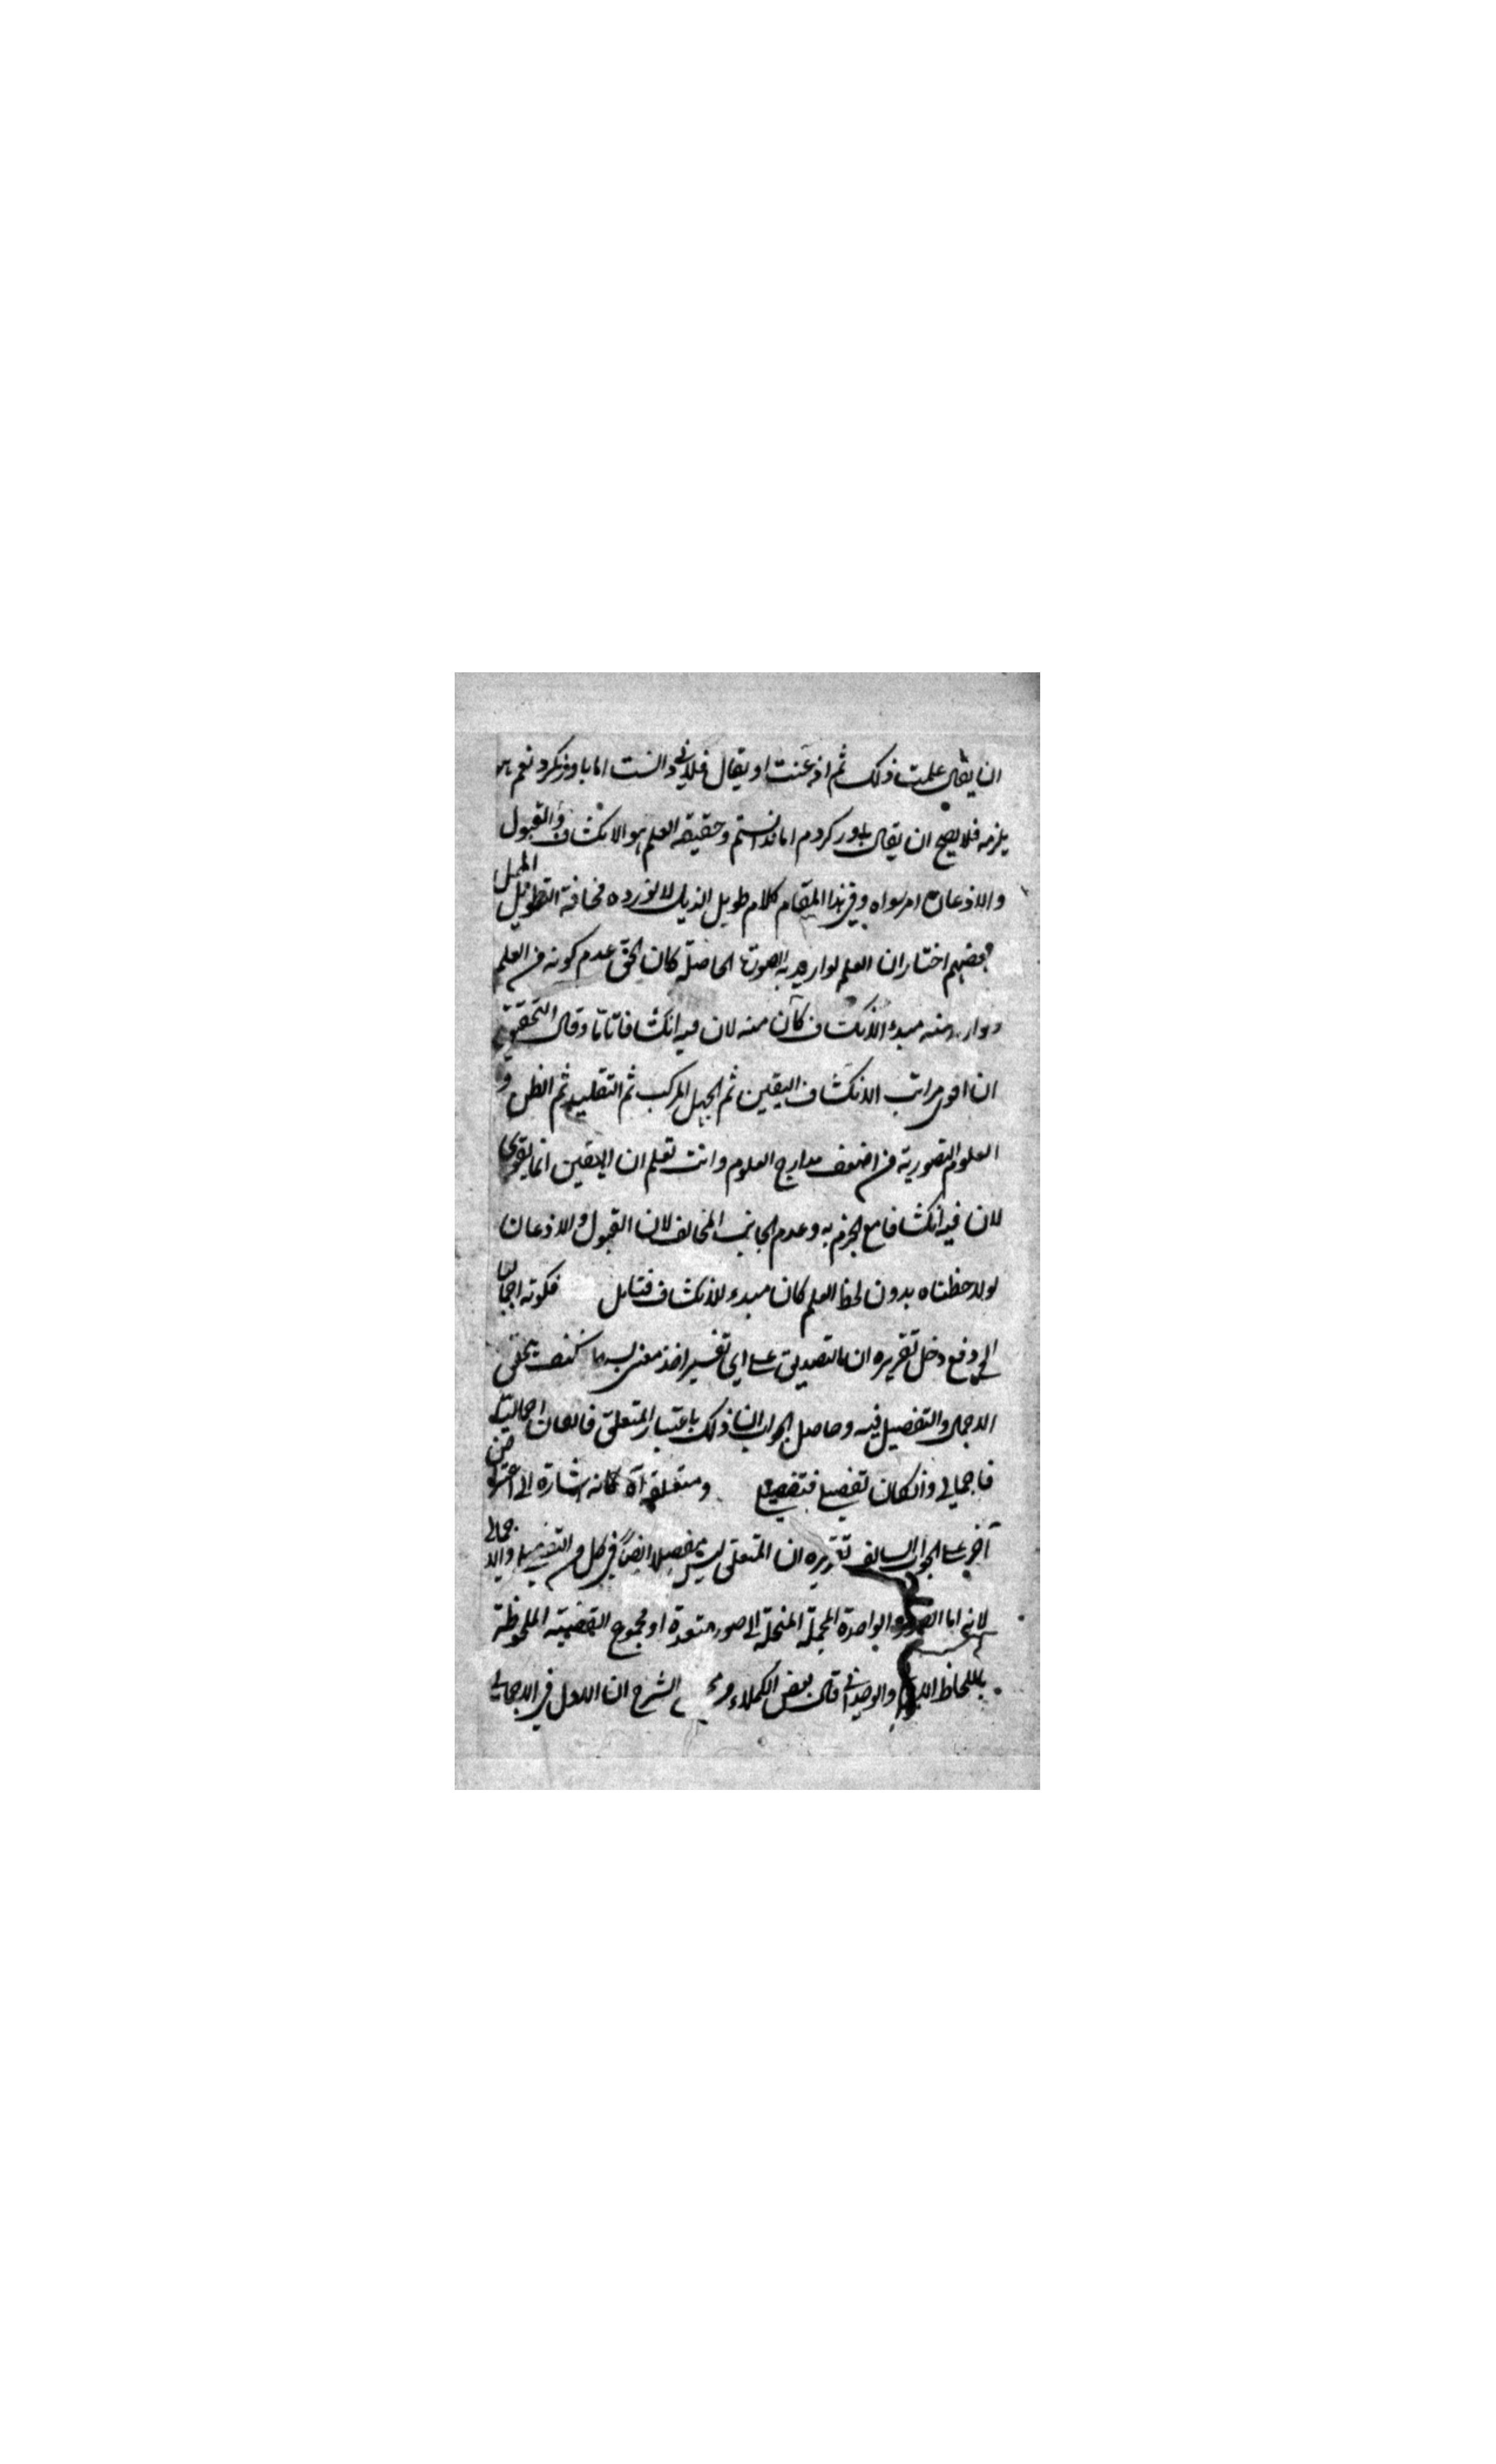 ان يقال علمت ذلك ثم اذعنت او يقال فلاني دانست اما باور نكرد نعم
يلزمه فلا يصح ان يقال باور كردم اما ندانستم وحقيقة العلم هو الانكشاف والقبول
والاذعان امر سواه وفي هذا المقام كلام طويل الذيل لا نورده مخافة التطويل الممل
بعضهم اختار ان العلم لو اريد به الصورة الحاصلة كان الحق عدم كونه من العلم
ولو اريد منه مبدء الانكشاف كان منه لان فيه انكشافا تاما وقال التحقيق
ان اقوى مراتب الانكشاف اليقين ثم الجهل المركب ثم التقليد ثم الظن و
العلوم التصورية من اضعف مدارج العلوم وانت تعلم ان اليقين انما يقوى
لان فيه انكشافا مع الجزم به وعدم الجانب المخالف لان القبول والاذعان
لو لاحظناه بدون لحظ العلم كان مبدء للانكشاف فتامل فكونه اجماليا
الى دفع دخل تقريره ان التصديق على اي تفسير اخذ معنى بسيط فكيف يتحقق
الاجمال والتفصيل فيه وحاصل الجواب ان ذلك باعتبار المتعلق فان كان اجماليا
فاجمالي وان كان تفصيليا فتفصيلي ومتعلقه آه كانه اشارة الى اعتراض
آخر على الجواب السالف تقريره ان المتعلق ليس بمفصل ايضا في كل من التفصيلي والاجمالي
لانه اما الصورة الواحدة المجملة المنحلة الى صور متعددة او مجموع القضية الملحوظة
باللحاظ الوحداني قال بعض الكملاء الشرح ان الاول في الاجمالي